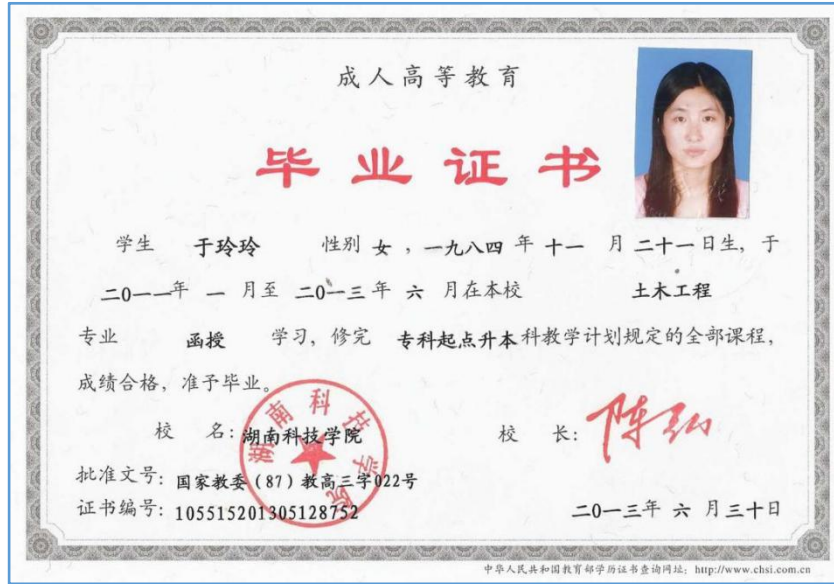 成人高等教育
毕业证书
学生 于玲玲 性别 女 ，一九八四 年 十一 月 二十一 日生，于
二0一一年 一 月至 二0一三 年 六 月在本校 土木工程
专业 函授 学习，修完 专科起点升本 科教学计划规定的全部课程，
成绩合格，准予毕业。
校 名：湖南科技学院 校 长：陈弘
湖南科技学院
批准文号：国家教委（87）教高三字022号
证书编号：105515201305128752 二0一三年 六 月三十日
中华人民共和国教育部学历证书查询网址：http://www.chsi.com.cn